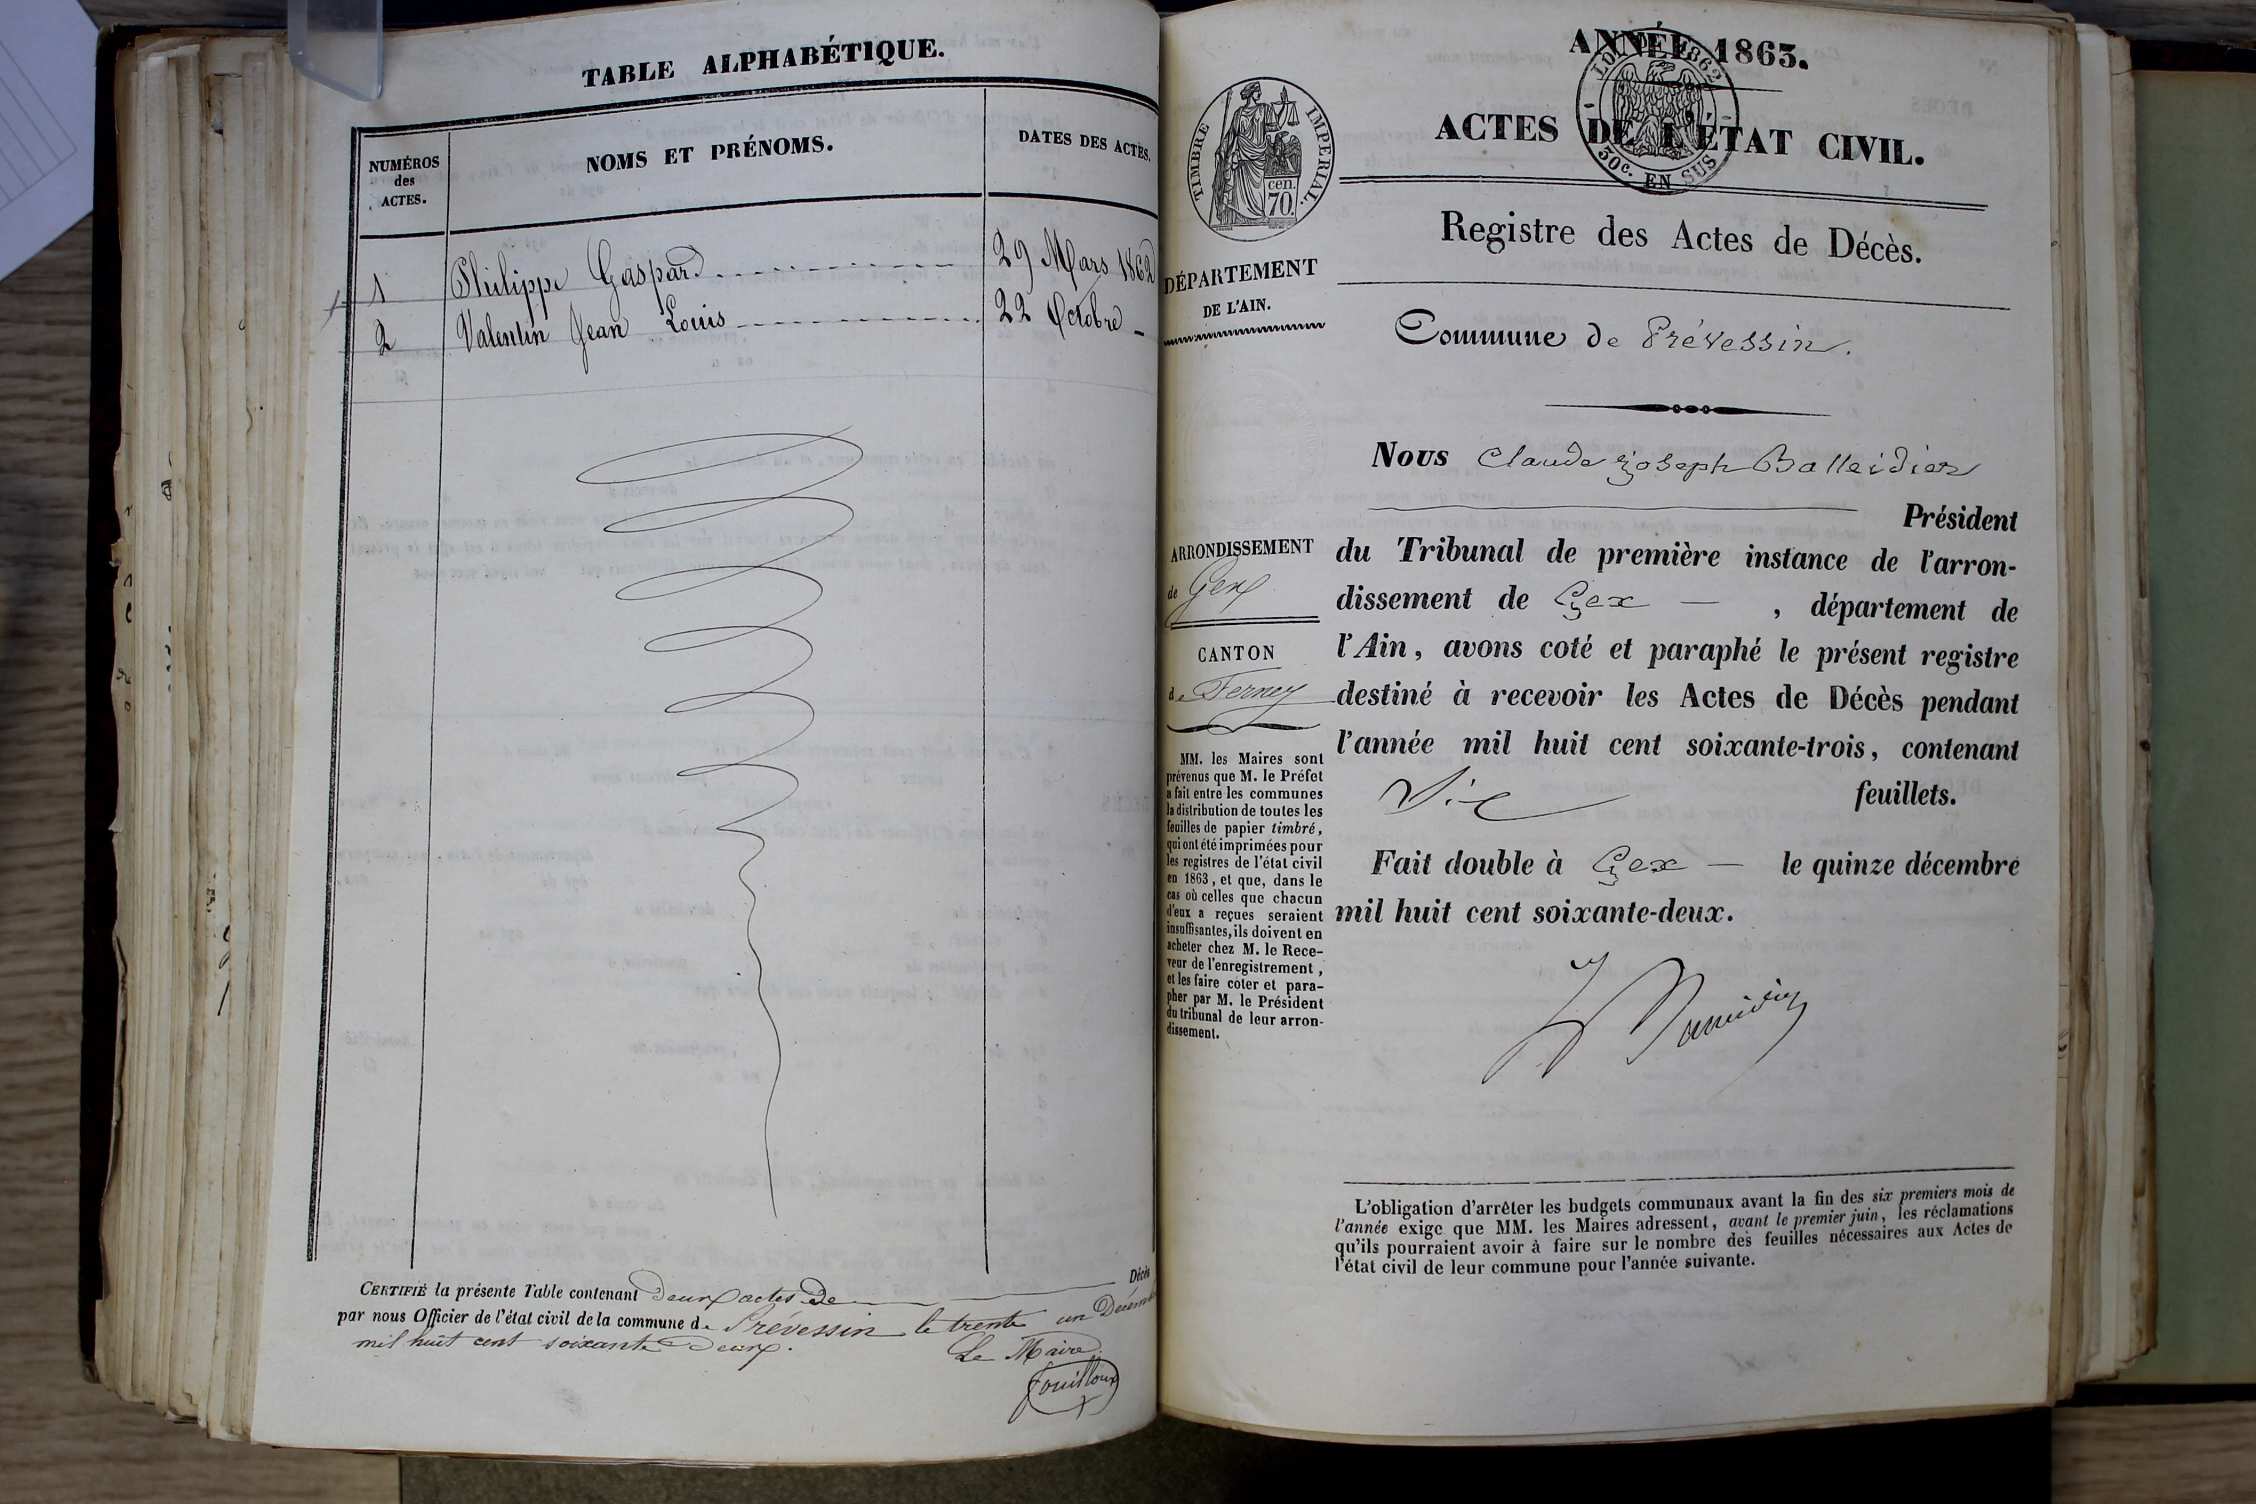 TABLE ALPHABÉTIQUE.
NUMÉROS
des
ACTES.
NOMS ET PRÉNOMS.
DATES DES ACTES.
1 Philippe Gaspard 29 Mars 1862
2 Valentin Jean Louis 22 Octobre
CERTIFIÉ la présente Table contenant Deux actes de Décès
par nous Officier de l'état civil de la commune de Prévessin le trente un Décembre
mil huit cent soixante Deux.
Le Maire
Fouilloux
ANNÉE 1863.
LOI DE 1862
30c. EN SUS
TIMBRE IMPERIAL.
cen.
70.
ACTES DE L'ÉTAT CIVIL.
Registre des Actes de Décès.
DÉPARTEMENT
DE L'AIN.
Commune de Prévessin.
Nous Claude Joseph Balleidier
Président
du Tribunal de première instance de l'arron-
dissement de Gex , département de
l'Ain, avons coté et paraphé le présent registre
destiné à recevoir les Actes de Décès pendant
l'année mil huit cent soixante-trois, contenant
Six feuillets.
Fait double à Gex le quinze décembre
mil huit cent soixante-deux.
ARRONDISSEMENT
de Gex
CANTON
de Ferney
MM. les Maires sont
prévenus que M. le Préfet
a fait entre les communes
la distribution de toutes les
feuilles de papier timbré,
qui ont été imprimées pour
les registres de l'état civil
en 1863, et que, dans le
cas où celles que chacun
d'eux a reçues seraient
insuffisantes, ils doivent en
acheter chez M. le Rece-
veur de l'enregistrement,
et les faire coter et para-
pher par M. le Président
du tribunal de leur arron-
dissement.
L'obligation d'arrêter les budgets communaux avant la fin des six premiers mois de
l'année exige que MM. les Maires adressent, avant le premier juin, les réclamations
qu'ils pourraient avoir à faire sur le nombre des feuilles nécessaires aux Actes de
l'état civil de leur commune pour l'année suivante.